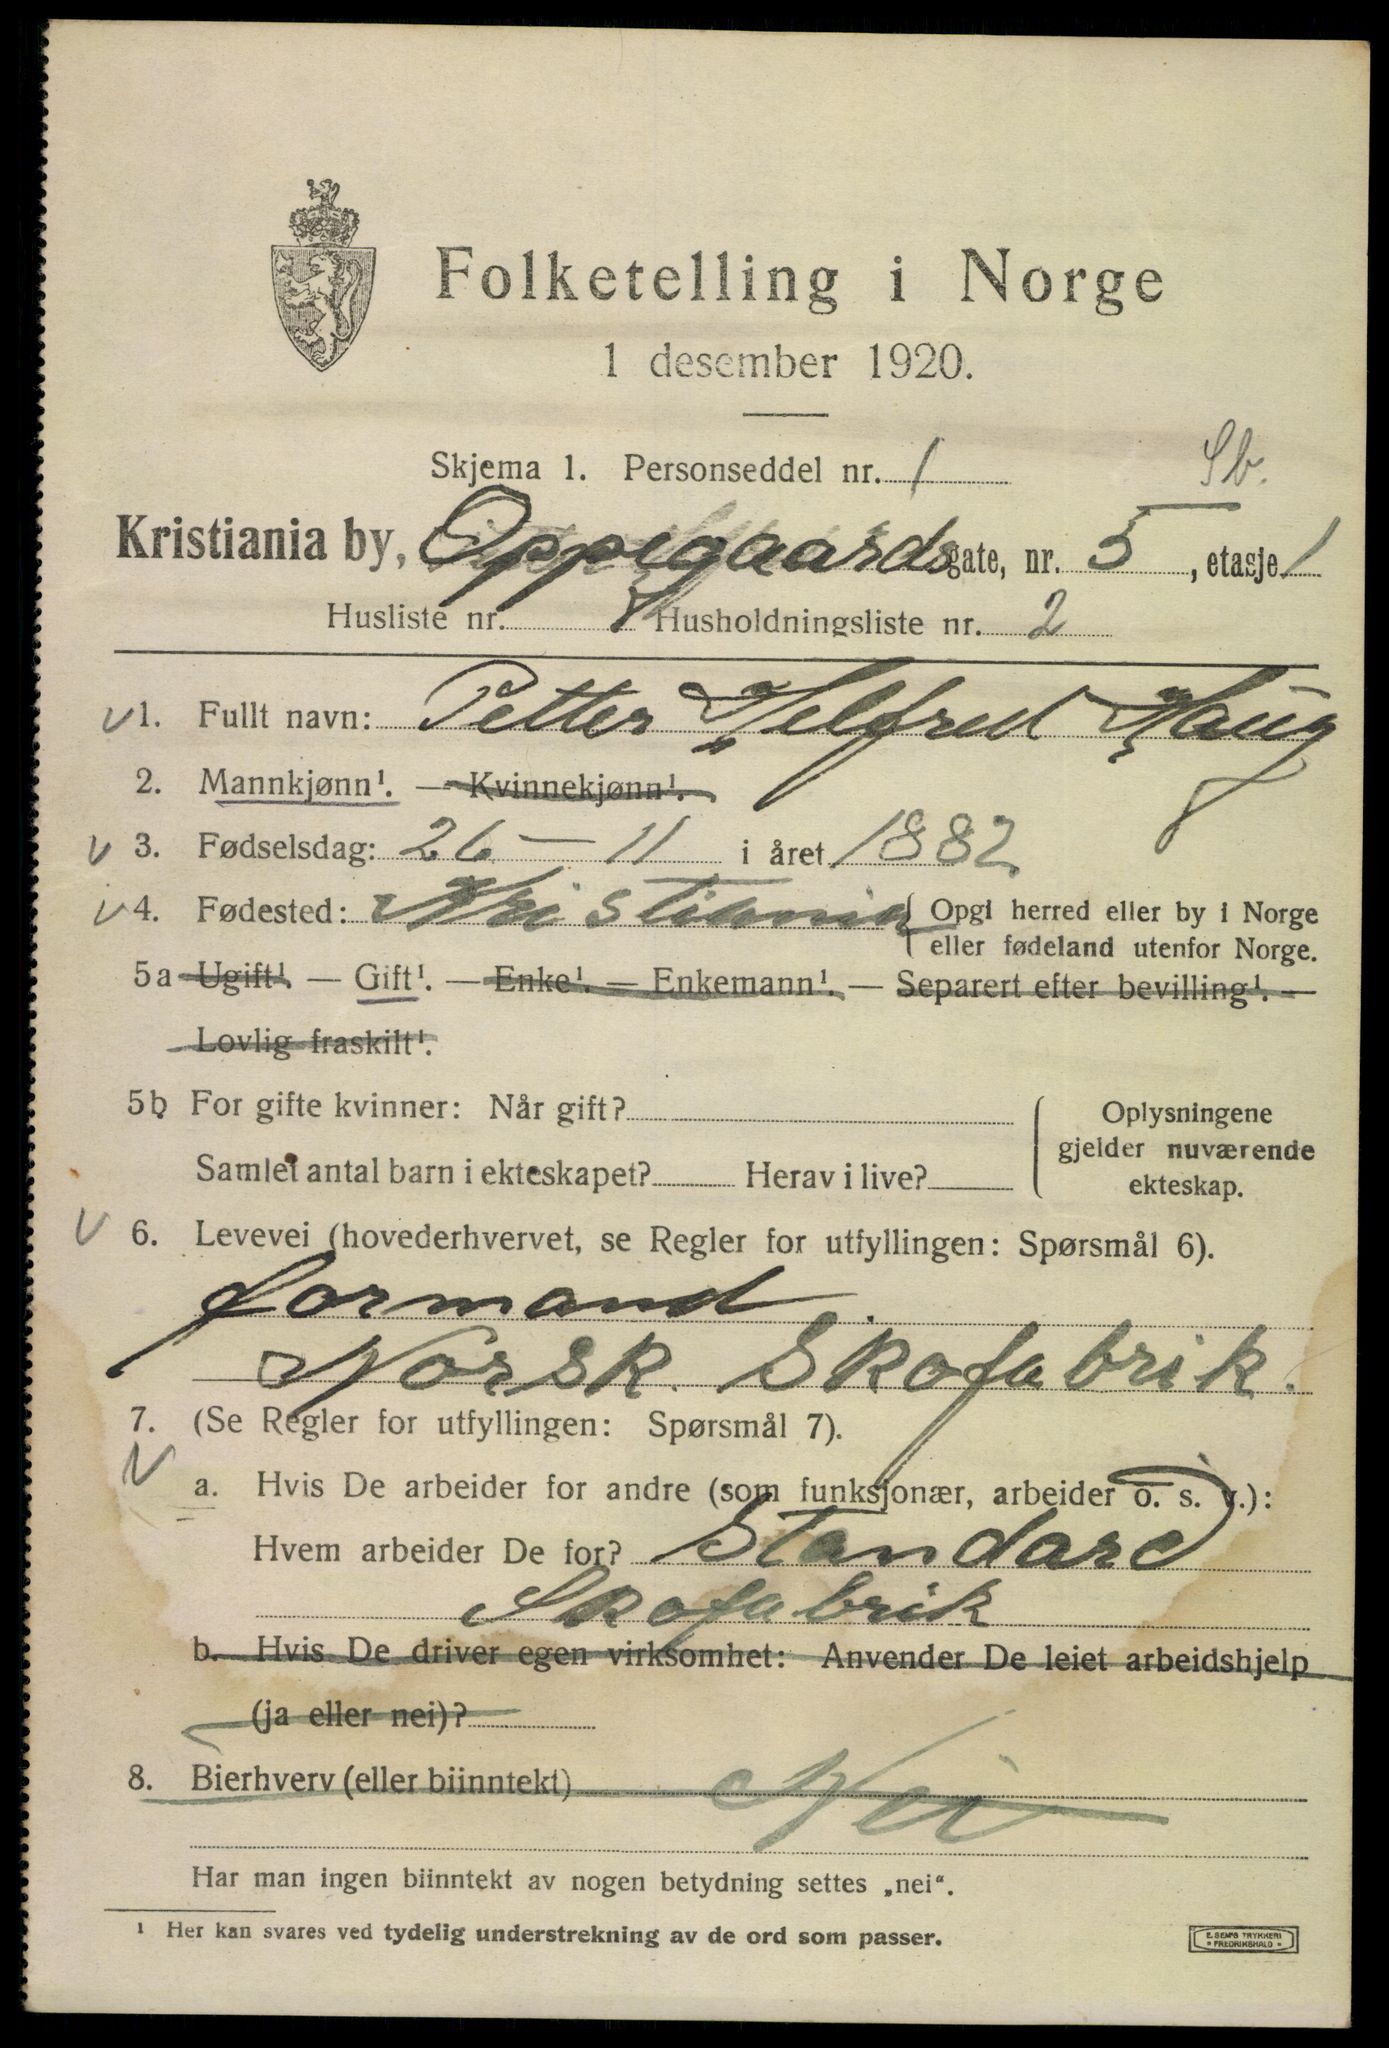 Folketelling i Norge
1 desember 1920.
Skjema 1. Personseddel nr. 1 Sb.
Kristiania by, Oppegaardsgate, nr. 5, etasje 1
Husliste nr. 1 Husholdningsliste nr. 2
v 1. Fullt navn: Petter Helfred Haug
2. Mannkjønn¹. — Kvinnekjønn¹.
v 3. Fødselsdag: 26 — 11 i året 1882
v 4. Fødested: Kristiania { Opgi herred eller by i Norge
eller fødeland utenfor Norge.
5a Ugift¹. — Gift¹. — Enke¹. — Enkemann¹. — Separert efter bevilling¹. —
Lovlig fraskilt¹.
5b For gifte kvinner: Når gift?
Samlet antal barn i ekteskapet? Herav i live?
{ Oplysningene
gjelder nuværende
ekteskap.
v 6. Levevei (hovederhvervet, se Regler for utfyllingen: Spørsmål 6).
formand
Norsk Skofabrik.
7. (Se Regler for utfyllingen: Spørsmål 7).
v a. Hvis De arbeider for andre (som funksjonær, arbeider o. s. v.):
Hvem arbeider De for? Standard
Skofabrik
b. Hvis De driver egen virksomhet: Anvender De leiet arbeidshjelp
(ja eller nei)?
8. Bierhverv (eller biinntekt) Nei
Har man ingen biinntekt av nogen betydning settes „nei“.
¹ Her kan svares ved tydelig understrekning av de ord som passer.
E. SEM'S TRYKKERI
FREDRIKSHALD